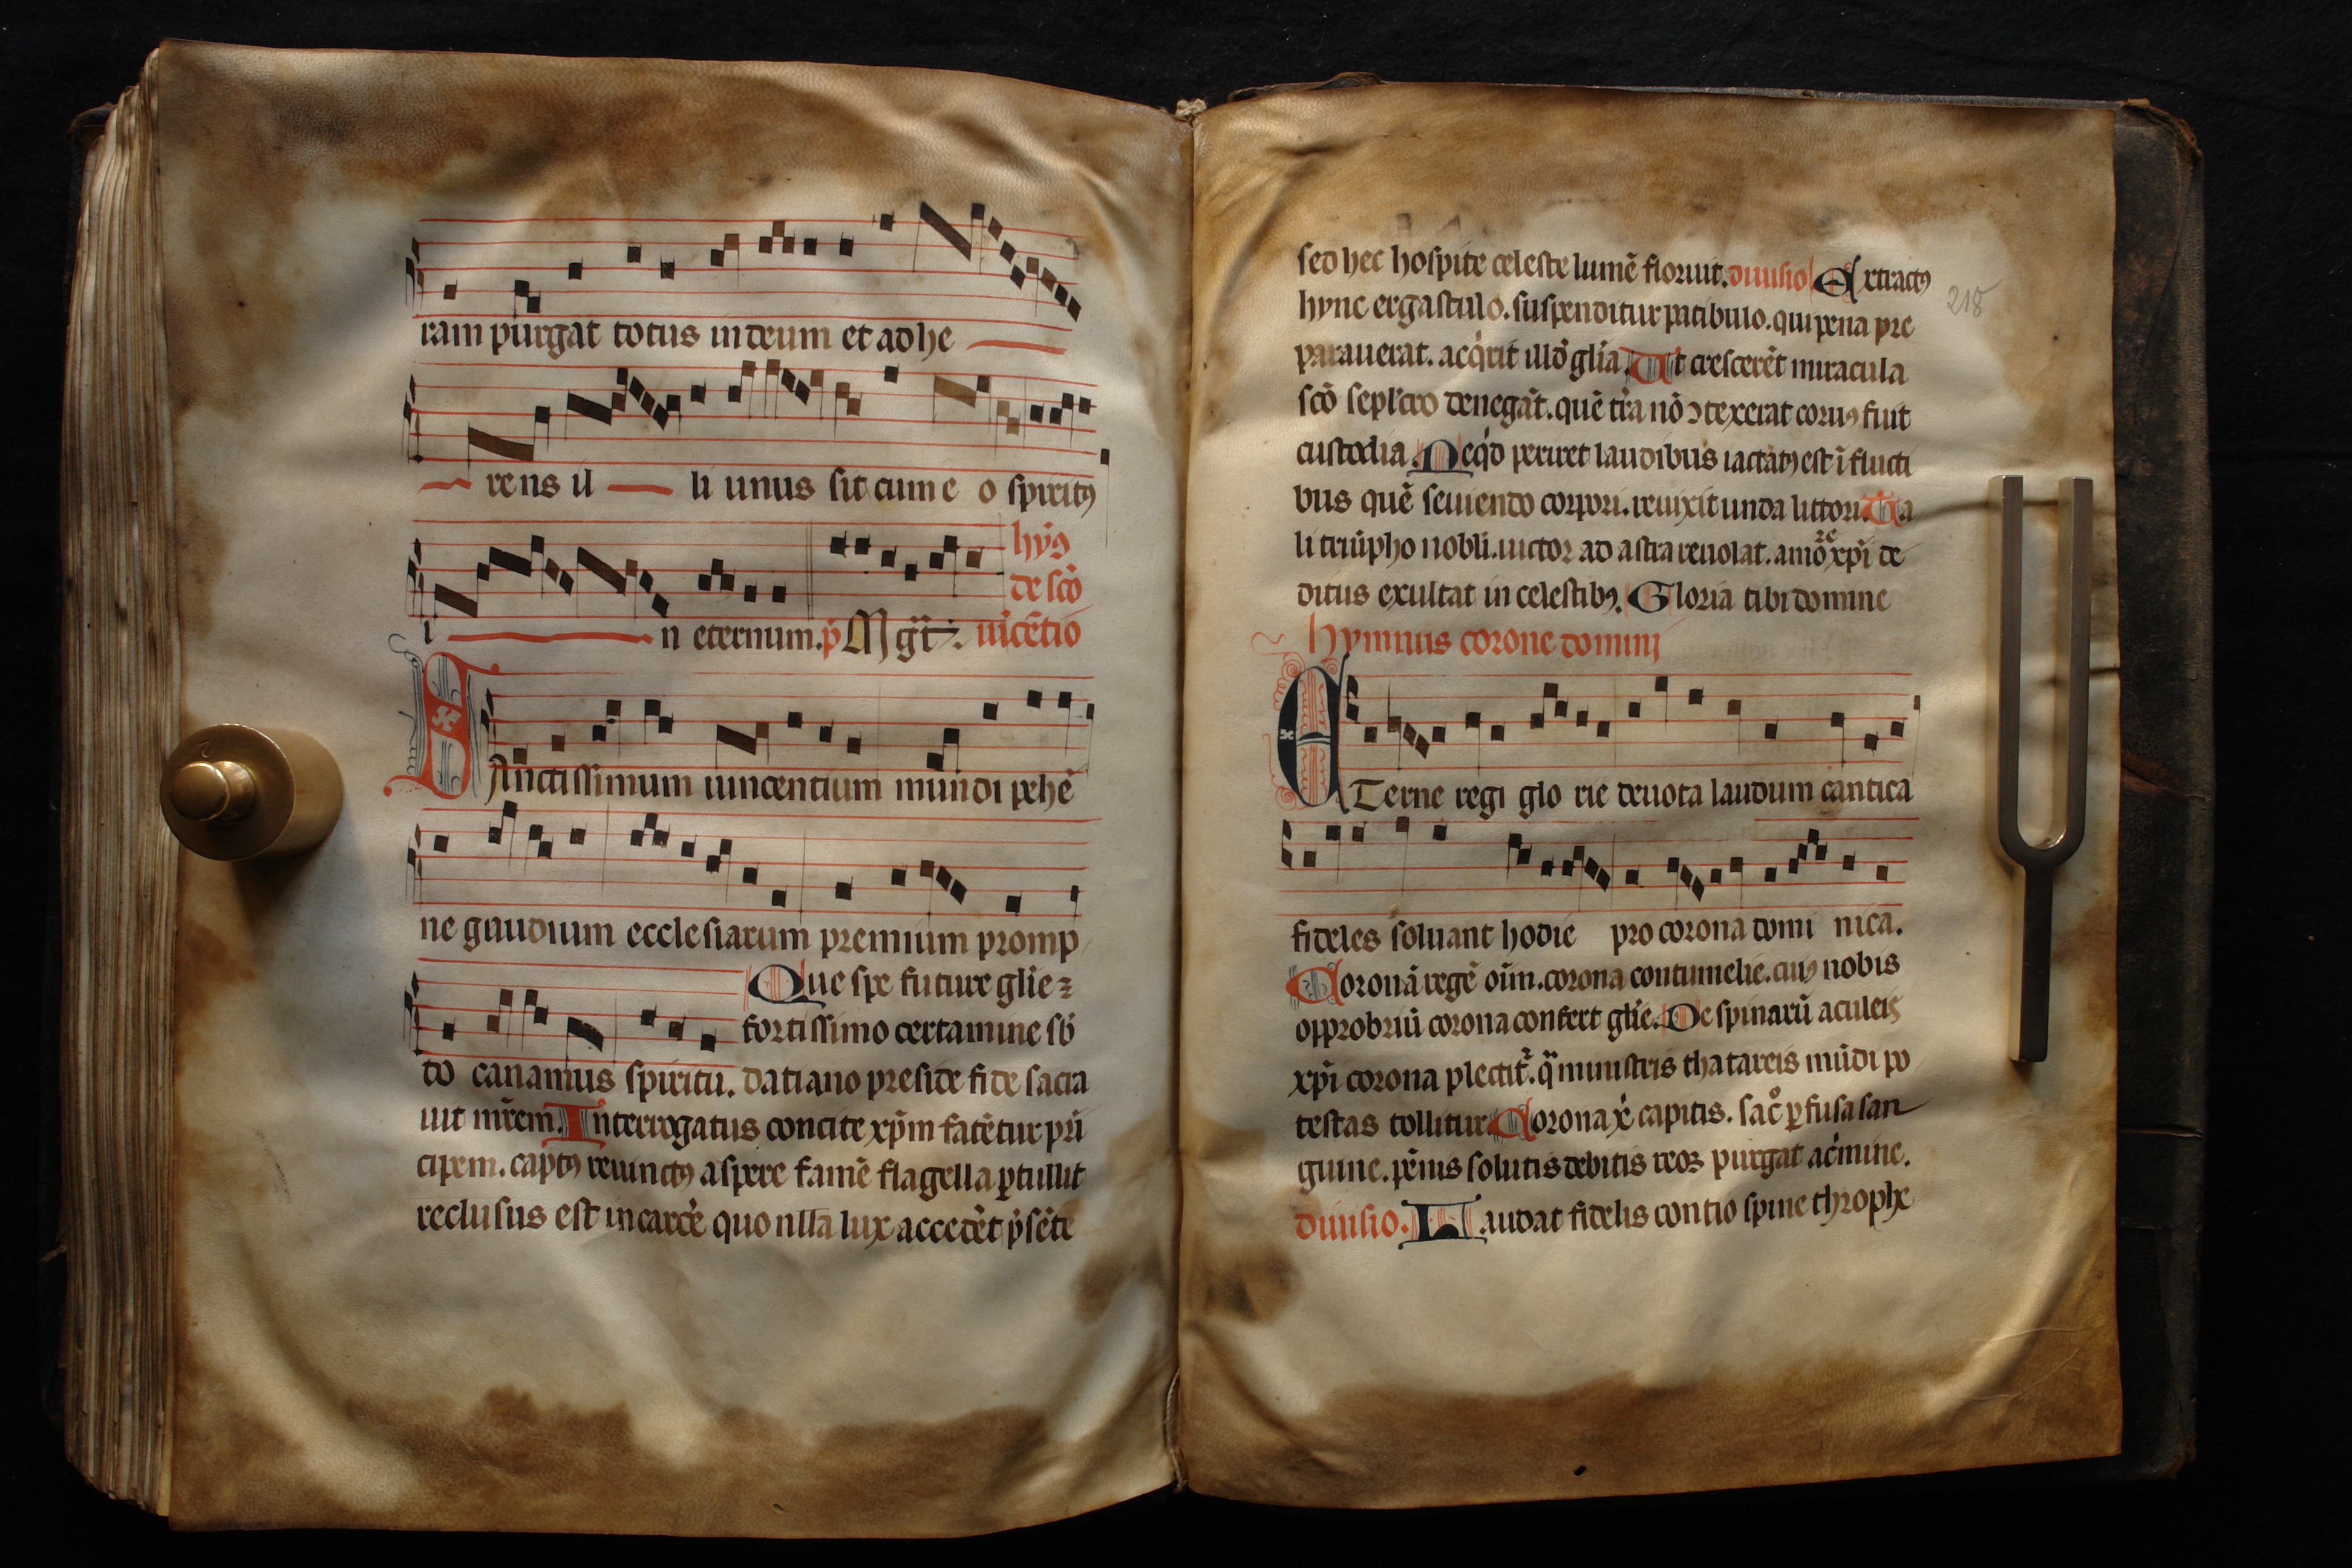 ram purgat totus in deum et adhe
rens il li unus sit cum e o spiritꝯ
hȳꝯ
de scō
i n eternum. p̄ Mgt̄ uīcētio
SAnctissimum uincentium mundi pehē
ne gaudium ecclesiarum premium promp
Que spe future glīe ⁊
fortissimo certamine sb̄
to canamus spiritu. datiano preside fide sacra
uit mr̄em. Interrogatus concite xp̄m fatētur prī
cipem. captꝯ reuinctꝯ aspere famē flagella ꝑtullit
reclusus est in carcē quo nlla lux accedēt p̄sēte
sed hec hospite celeste lumē floruit. diuisio Extractꝯ
hync ergastulo. suspenditur patibulo. qui pena pre
parauerat. acq̄rit illō glīa. Ut crescerēt miracula
scō seplcro denegāt. quē tr̄a nō ɔtexerat coruꝯ fuit
custodia. Neqd̄ periret laudibus iactātꝯ est ī flucti
bus quē seuiendo corpori. reuixit unda littori. Ta
re
li triūpho nobli. uictor ad astra reuolat. amō xp̄i de
ditus exultat in celestibꝯ. Gloria tibi domine
hymnus corone domini
218
ETerne regi glo rie deuota laudum cantica
fideles soluant hodie pro corona domi nica.
Coronā regē oīm. corona contumelie. cuiꝯ nobis
opprobriū corona confert glīe. De spinarū aculeis
xp̄i corona plectit᷑. q̄ ministris thatareis mūdi po
testas tollitur. Corona x̄ capitis. sac̊ ꝑfusa san
guine. pēnis solutis debitis reoꝝ purgat ac̄mine.
diuisio. Laudat fidelis contio spine throphe